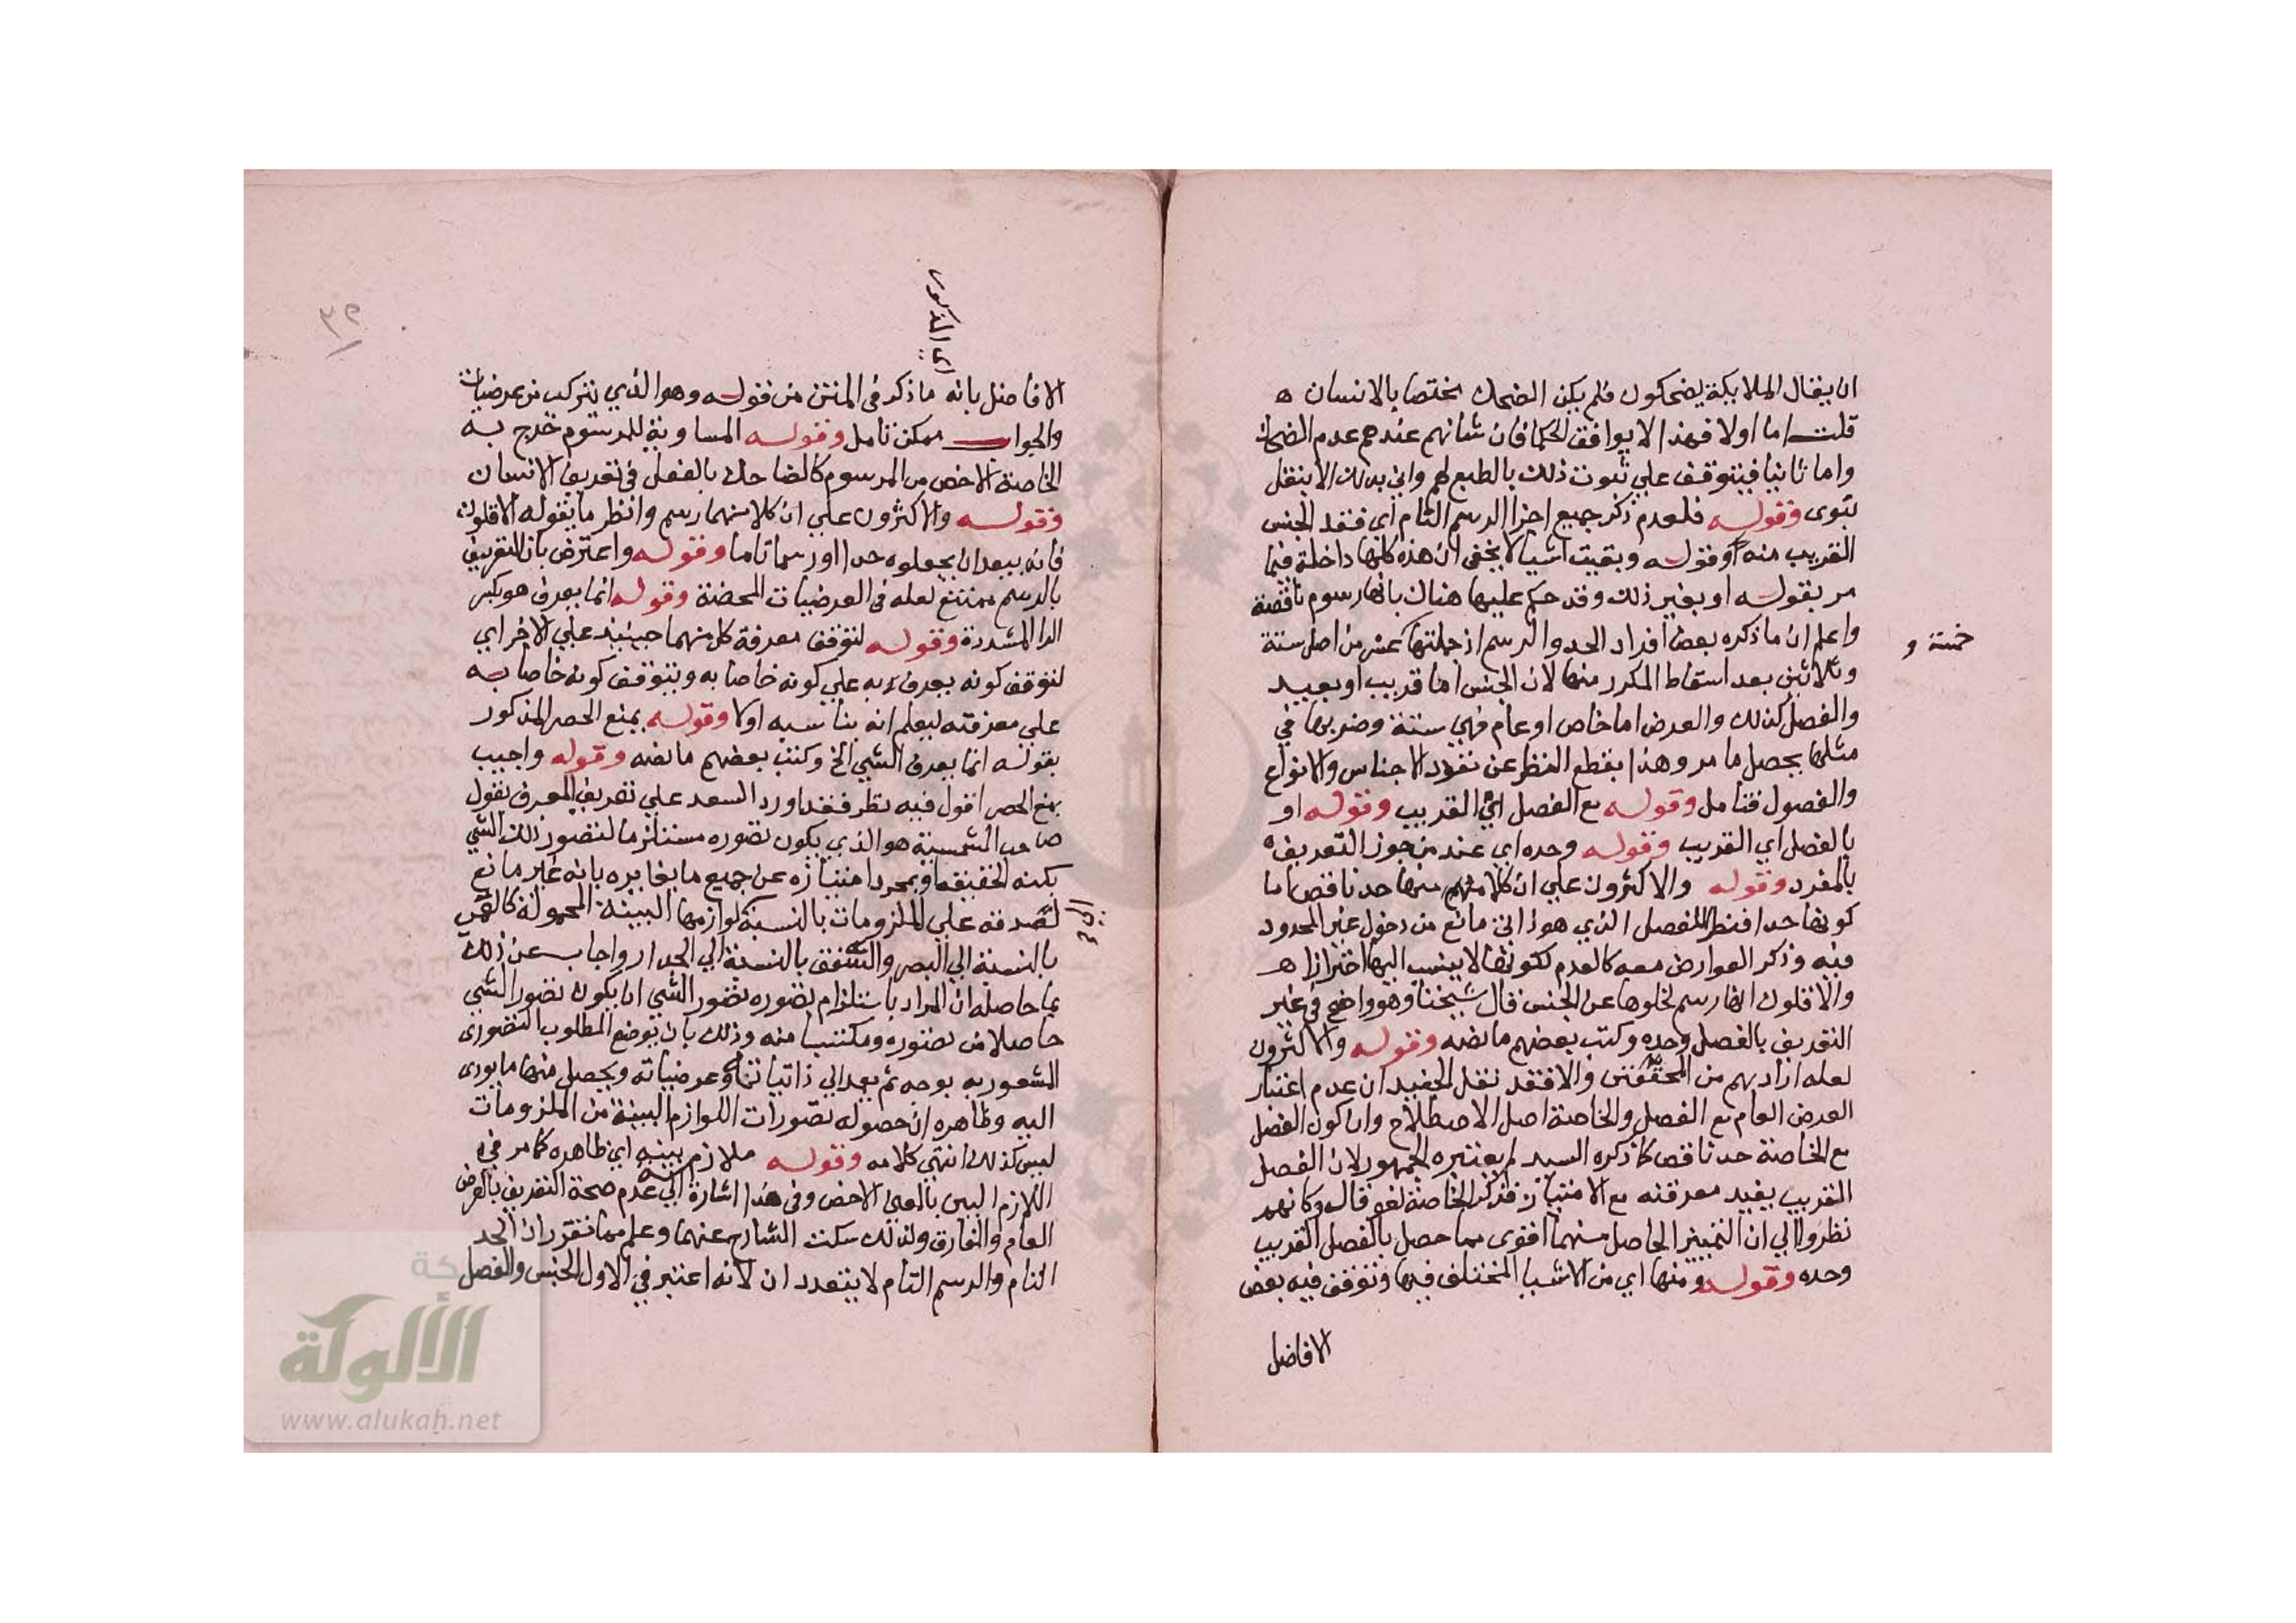 ان يقال الملايكة يضحكون فلم يكن الضحك مختصا بالانسان ه
قلت اما اولا فهذا لا يوافق الحكما فان شانهم عندهم عدم الضحك
واما ثانيا فيتوقف علي ثبوت ذلك بالطبع لهم واني بذلك الا بنقل
نبوى وقوله فلعدم ذكر جميع اجزا الرسم التام اى فقد الجنس
القريب منه وقوله وبقيت اشيا لا يخفى ان هذه كلها داخلة فيما
مر بقوله او بغير ذلك وقد حكم عليها هناك بانها رسوم ناقصة
واعلم ان ما ذكره بعض افراد الحد والرسم اذ جملتها عشر من اصل ستة
خمسة و
وثلاثين بعد اسقاط المكرر منها لان الجنس اما قريب او بعيد
والفصل كذلك والعرض اما خاص او عام فهي ستة وضربها في
مثلها يحصل ما مر وهذا بقطع النظر عن تعدد الاجناس والانواع
والفصول فتامل وقوله مع الفصل اي القريب وقوله او
بالفصل اي القريب وقوله وحده اي عند من جوز التعريف
بالمفرد وقوله والاكثرون علي ان كلا منها حد ناقص اما
كونها حدا فنظرا للفصل الذي هو ذاتي مانع من دخول غير المحدود
فيه وذكر العوارض معه كالعدم لكونها لا ينسب اليها احترازا ه
والاقلون انها رسم لخلوها عن الجنس قال شيخنا وهو واضح في غير
التعريف بالفصل وحده وكتب بعضهم ما نصه وقوله والاكثرون
لعله اراد بهم من المحققين والا فقد نقل الحفيد ان عدم اعتبار
العرض العام مع الفصل والخاصة اصل الاصطلاح وان كون الفصل
مع الخاصة حد ناقص كما ذكره السيد لم يعتبره الجمهور لان الفصل
القريب يفيد معرفته مع الامتياز فذكر الخاصة لغو قال وكانهم
نظروا الي ان التمييز الحاصل منهما اقوى مما حصل بالفصل القريب
وحده وقوله ومنها اي من الاشيا المختلف فيها وتوقف فيه بعض
الافاضل
٣٢
اي المذكور
الافاضل بانه ما ذكر في المتن من قوله وهو الذي يتركب من عرضيات
والجواب ممكن تامل وقوله المساوية للمرسوم خرج به
الخاصة الاخص من المرسوم كالضاحك بالفعل في تعريف الانسان
وقوله والاكثرون علي ان كلا منهما رسم وانظر ما يقوله الاقلون
فانه يبعد ان يجعلوه حدا او رسما تاما وقوله واعترض بان التعريف
بالرسم ممتنع لعله في العرضيات المحضة وقوله انما يعرف هو بكسر
الرا المشددة وقوله لتوقف معرفة كل منهما حينيذ علي الاخر اي
لتوقف كونه يعرف به علي كونه خاصا به ويتوقف كونه خاصا به
علي معرفته ليعلم انه يناسبه اولا وقوله بمنع الحصر المذكور
بقوله انما يعرف الشي الخ وكتب بعضهم ما نصه وقوله واجيب
بمنع الحصر اقول فيه نظر فقد اورد السعد علي تعريف المعرف بقول
صاحب الشمسية هو الذي يكون تصوره مستلزما لتصور ذلك الشي
بكنه الحقيقه او بمجرد امتيازه عن جميع ما يغايره بانه غير مانع
لصدقه علي الملزومات بالنسبة لوازمها البينة المحمولة كالعمي
بالنسبة الي البصر والسقف بالنسبة الي الجدار واجاب عن ذلك
بما حاصله ان المراد باستلزام تصوره تصور الشي ان يكون تصور الشي
حاصلا من تصوره ومكتسبا منه وذلك بان يوضع المطلوب التصورى
المشعور به بوجه ثم يعمد الي ذاتياته وعرضياته ويحصل منها ما يودى
اليه وظاهره ان حصوله تصورات اللوازم البينة من الملزومات
ليس كذلك انتهى كلامه وقوله ملازم بينه اي ظاهره كما مر في
اللازم البين بالمعني الاخص وفي هذا اشارة الي عدم صحة التعريف بالعرض
العام والمفارق ولذلك سكت الشارح عنهما وعلم مما تقرر ان الحد
التام والرسم التام لا يتعددان لانه اعتبر في الاول الجنس والفصل
الألوكة
www.alukah.net